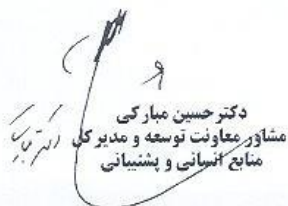 دکتر حسین مبارکی
مشاور معاونت توسعه و مدیر کل
منابع انسانی و پشتیبانی